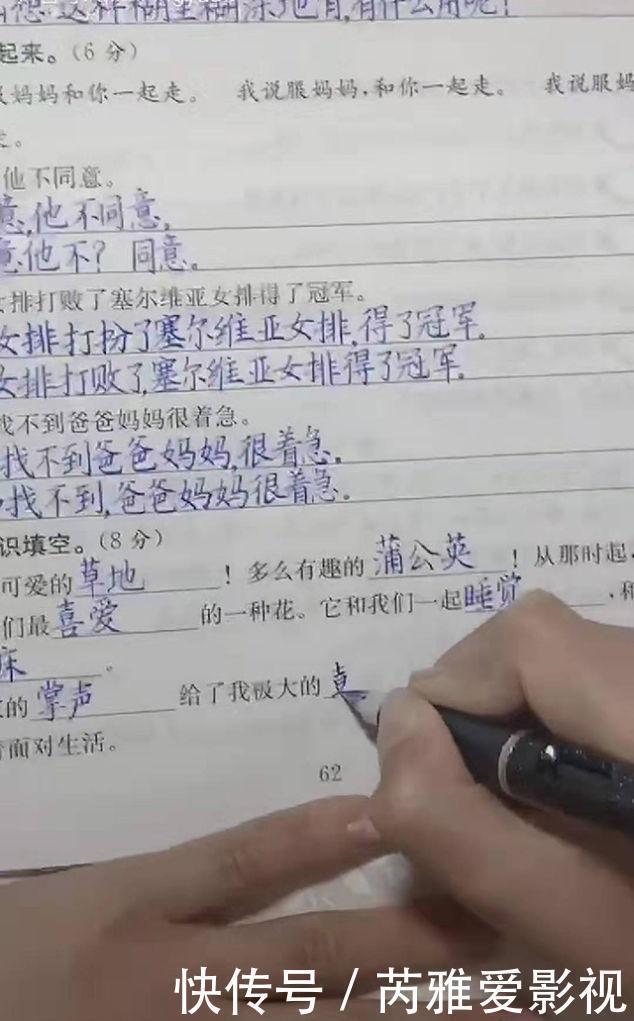 这样糊里糊涂地背,有什么用呢?
起来。(6分)
妈妈和你一起走。 我说服妈妈,和你一起走。 我说服妈
他不同意。
意,他不同意。
意他不?同意。
女排打败了塞尔维亚女排得了冠军。
女排打扮了塞尔维亚女排,得了冠军。
女排打败了,塞尔维亚女排得了冠军。
找不到爸爸妈妈很着急。
找不到爸爸妈妈,很着急。
找不到,爸爸妈妈很着急。
识填空。(8分)
可爱的草地!多么有趣的蒲公英!从那时起,
们最喜爱的一种花。它和我们一起睡觉,和
床。
的掌声给了我极大的
面对生活。
62
快传号 / 芮雅爱影视